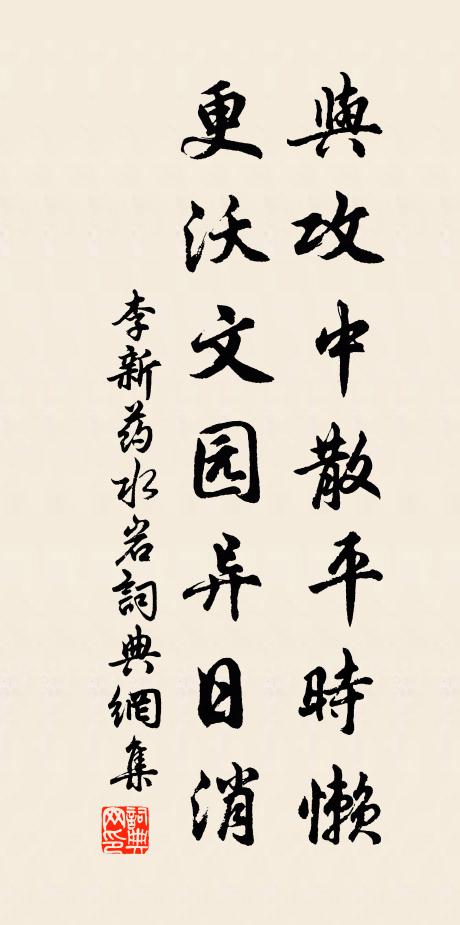 與攻中散平時懶
更沃文园异日消
李新药水岩詞典網集
詞典网印